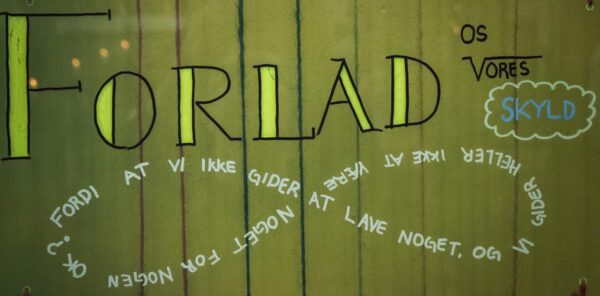 FORLAD
OS
VORES
SKYLD
FORDI AT VI IKKE GIDER AT LAVE NOGET, OG VI GIDER HELLER IKKE AT VÆRE NOGET FOR NOGEN OK?